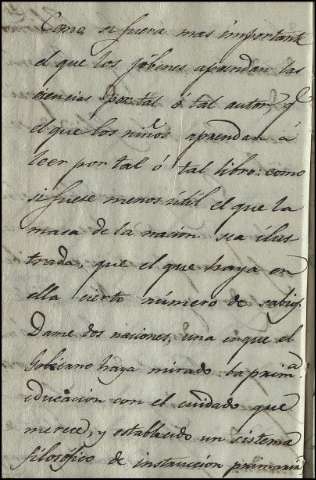 Como si fuera mas importante
el que los jóbenes aprendan las
ciencias por tal ó tal autor, q.e
el que los niños aprendan á
leer por tal ó tal libro: como
si fuese menos útil el que la
masa de la nacion sea ilus
trada, que el que haya en
ella cierto número de sabios.
Dame dos naciones, una in que el
Gobierno haya mirado la prim.a
educacion con el cuidado que
merece, y establecido un sistema
filosófico de instruccion primaria